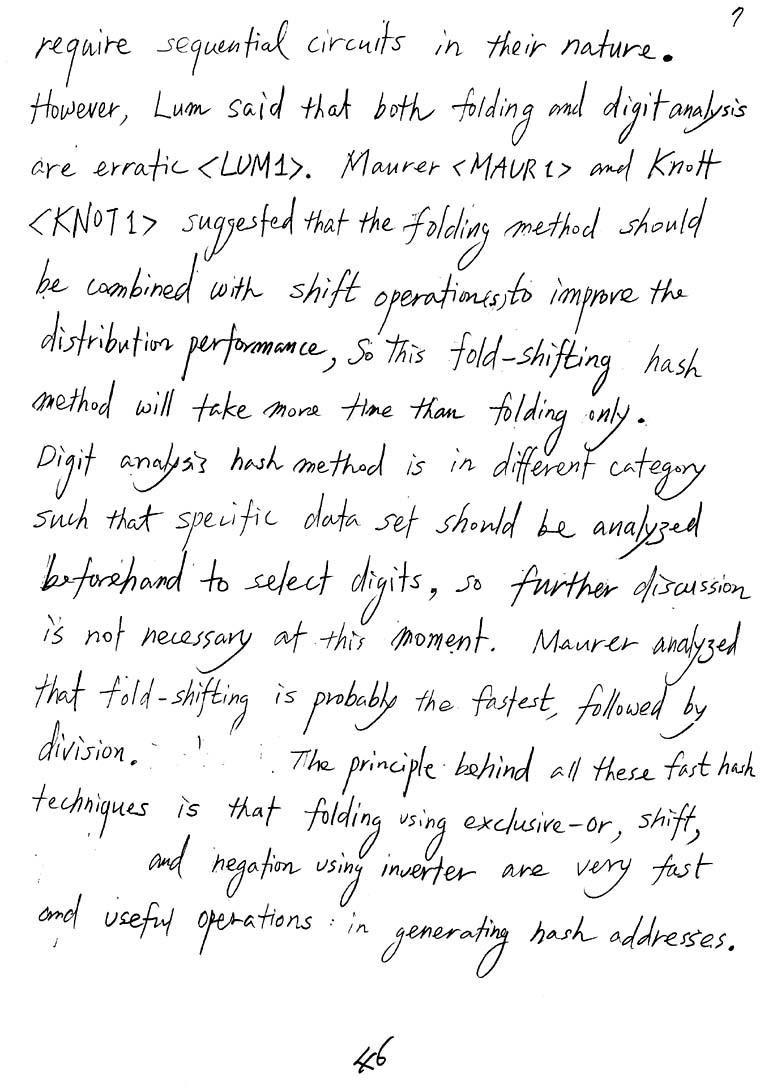 7
require sequential circuits in their nature.
However, Lum said that both folding and digit analysis
are erratic <LUM1>. Maurer <MAUR1> and Knott
<KNOT1> suggested that the folding method should
be combined with shift operation(s) to improve the
distribution performance, So This fold-shifting hash
method will take more time than folding only.
Digit analysis hash method is in different category
such that specific data set should be analyzed
beforehand to select digits, so further discussion
is not necessary at this moment. Maurer analyzed
that fold-shifting is probably the fastest, followed by
division. The principle behind all these fast hash
techniques is that folding using exclusive-or, shift,
and negation using inverter are very fast
and useful operations in generating hash addresses.
46